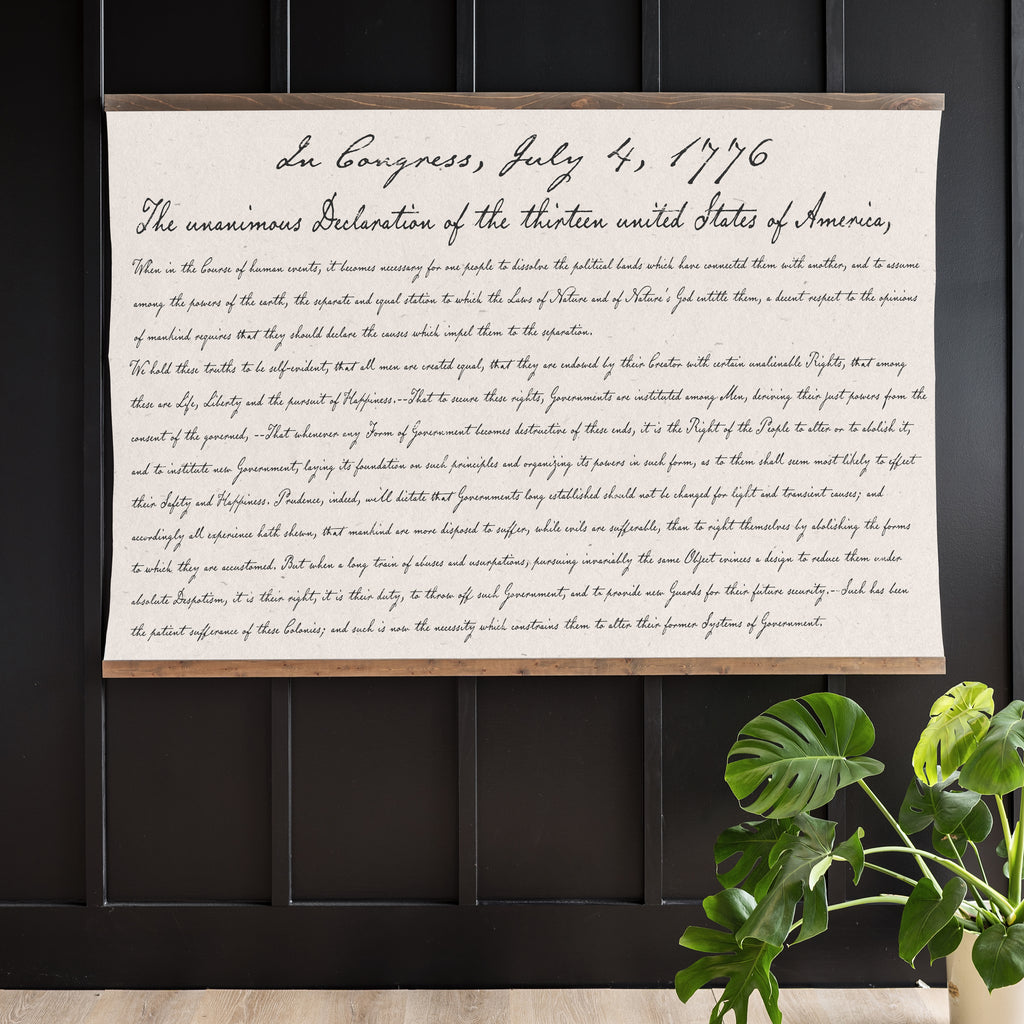 In Congress, July 4, 1776
The unanimous Declaration of the thirteen united States of America,
When in the Course of human events, it becomes necessary for one people to dissolve the political bands which have connected them with another, and to assume
among the powers of the earth, the separate and equal station to which the Laws of Nature and of Nature's God entitle them, a decent respect to the opinions
of mankind requires that they should declare the causes which impel them to the separation.
We hold these truths to be self-evident, that all men are created equal, that they are endowed by their Creator with certain unalienable Rights, that among
these are Life, Liberty and the pursuit of Happiness.--That to secure these rights, Governments are instituted among Men, deriving their just powers from the
consent of the governed, --That whenever any Form of Government becomes destructive of these ends, it is the Right of the People to alter or to abolish it,
and to institute new Government, laying its foundation on such principles and organizing its powers in such form, as to them shall seem most likely to effect
their Safety and Happiness. Prudence, indeed, will dictate that Governments long established should not be changed for light and transient causes; and
accordingly all experience hath shewn, that mankind are more disposed to suffer, while evils are sufferable, than to right themselves by abolishing the forms
to which they are accustomed. But when a long train of abuses and usurpations, pursuing invariably the same Object evinces a design to reduce them under
absolute Despotism, it is their right, it is their duty, to throw off such Government, and to provide new Guards for their future security.--Such has been
the patient sufferance of these Colonies; and such is now the necessity which constrains them to alter their former Systems of Government.